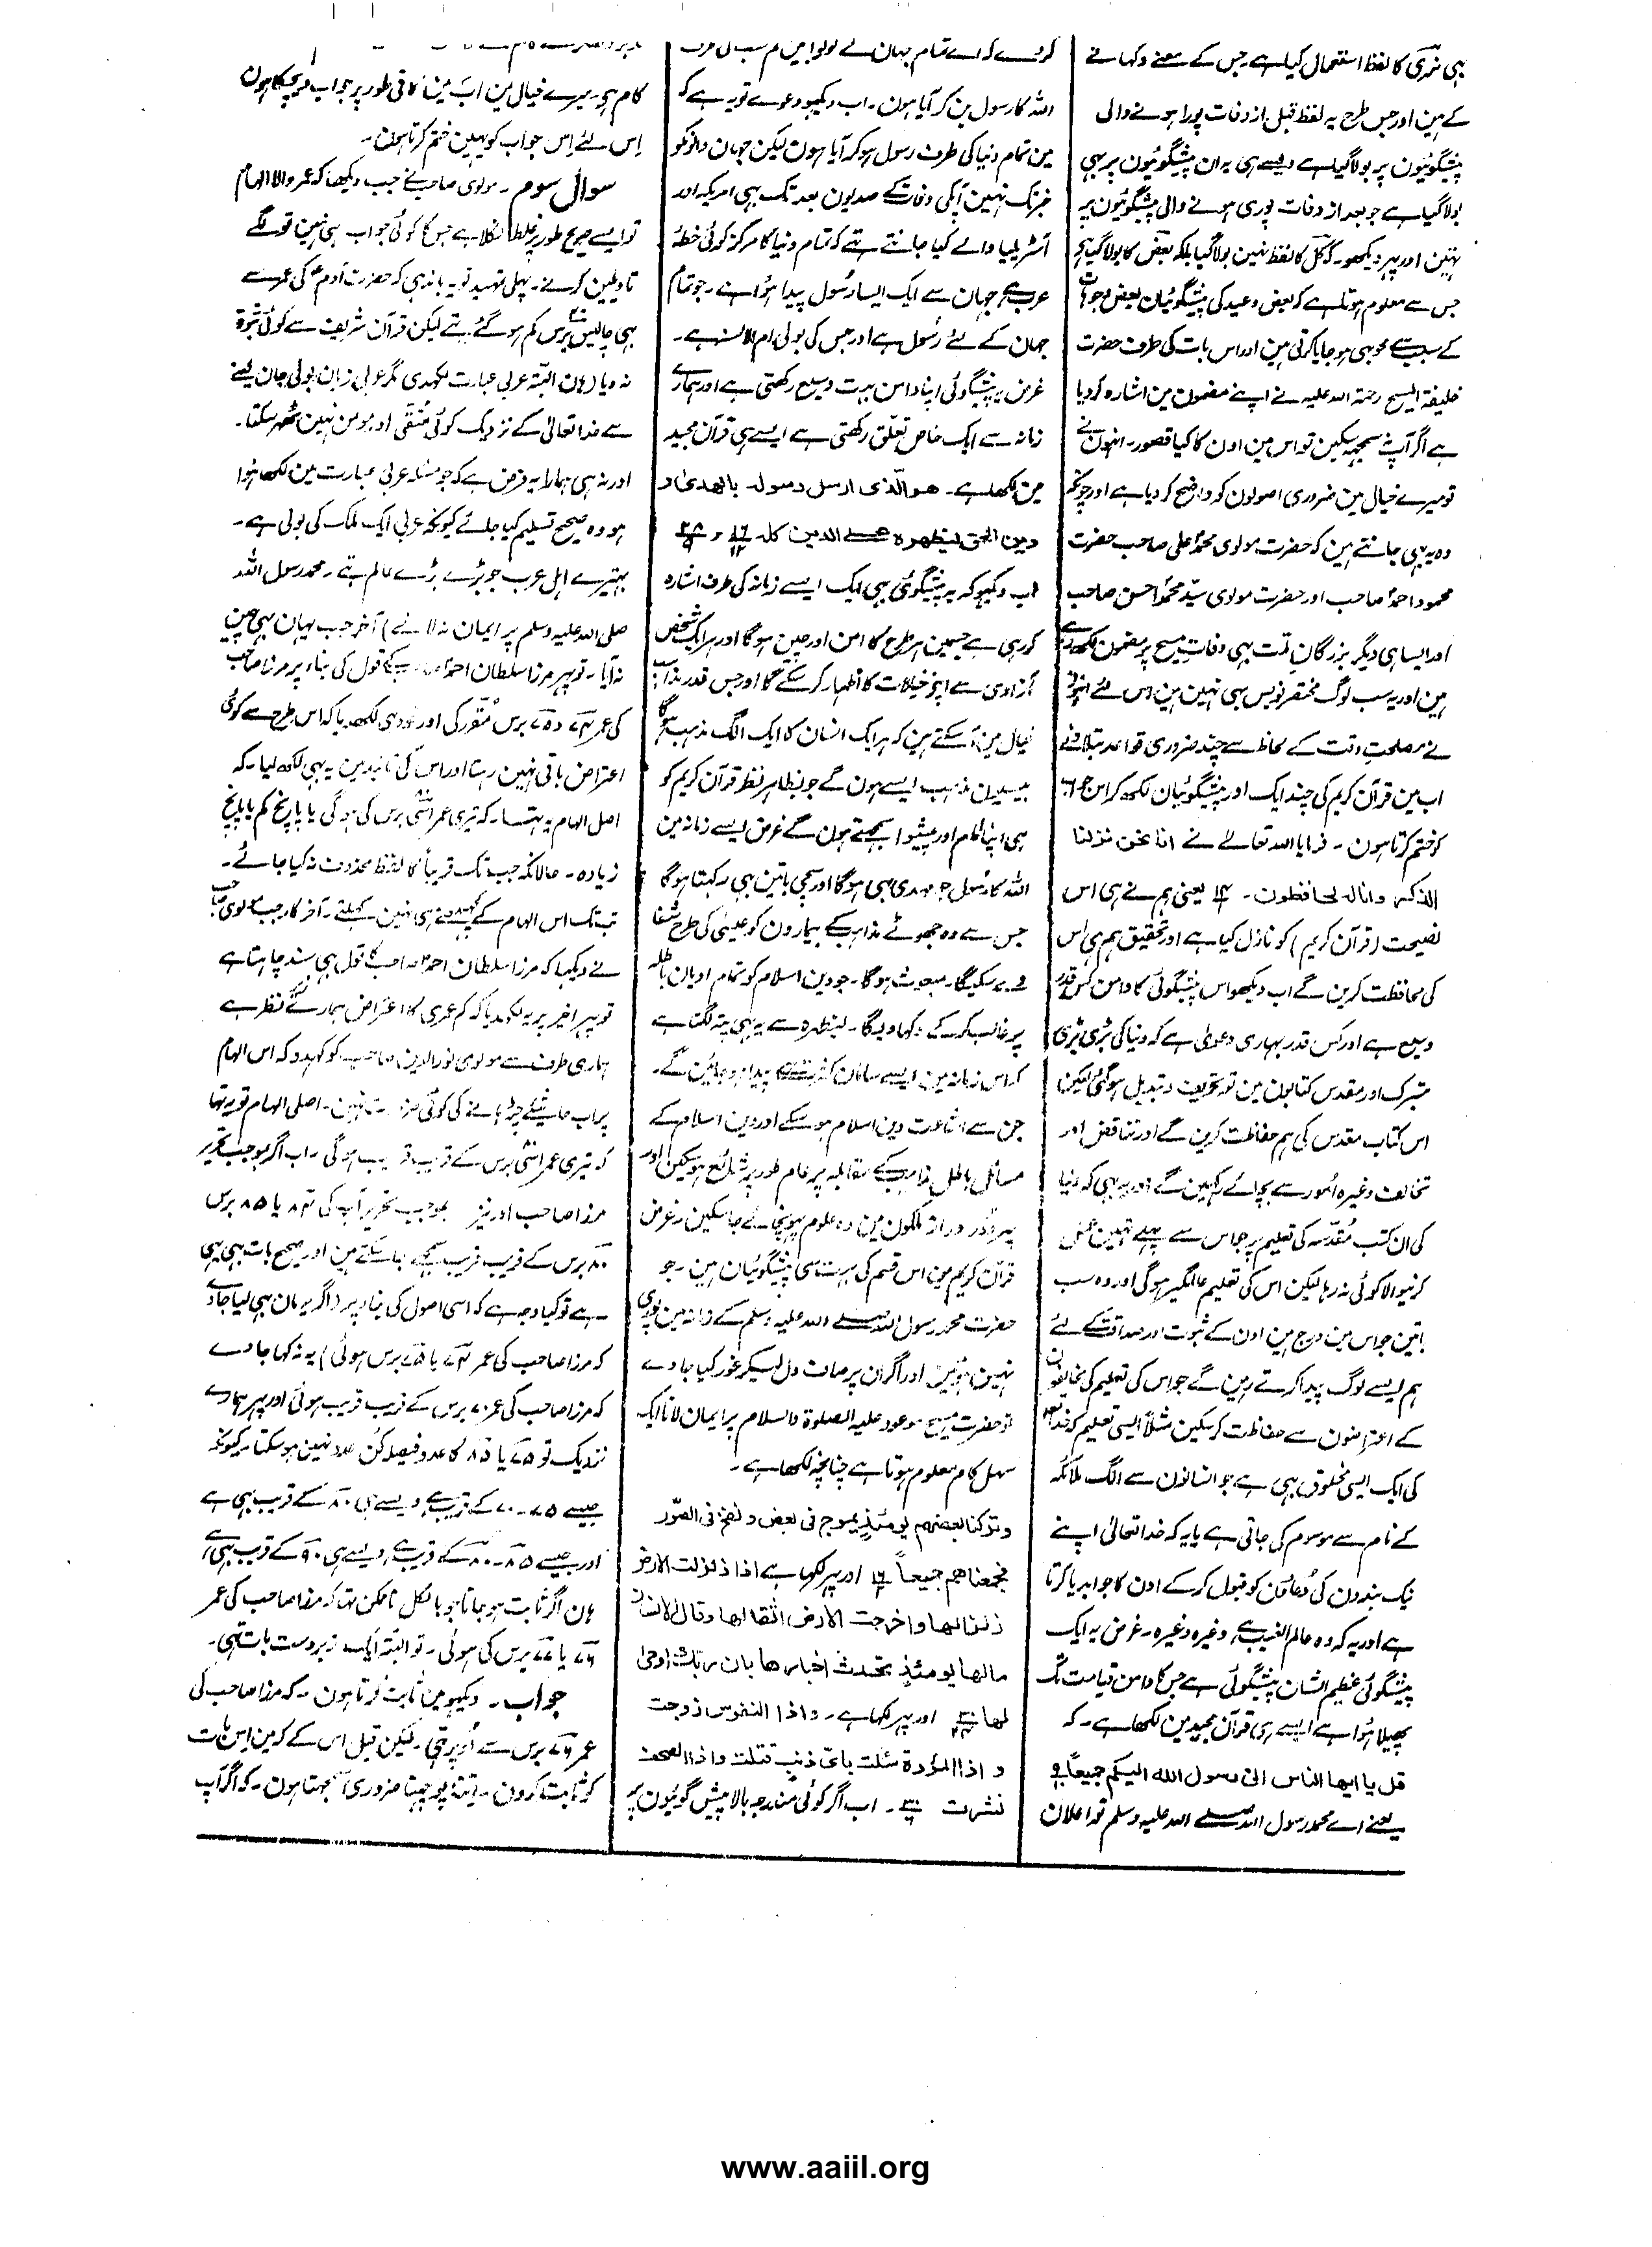 بہی نُری کا لفظ استعمال کیا ہے۔ جس کے معنے دکہانے
کے ہین اور جس طرح یہ لفظ قبل از وفات پورا ہونے والی
پیشگوئیون پر بولا گیا ہے ویسے ہی یہ ان پیشگوئیون پر بہی
بولا گیا ہے جو بعد از وفات پوری ہونے والی پیشگوئیون پر
نہین اور پہر دیکہو۔ کہ کُل کا لفظ نہین بولا گیا بلکہ بعض کا بولا گیا ہے
جس سے معلوم ہوتا ہے کہ بعض وعید کی پیشگوئیان بعض وجوہات
کے سبب سے محو بہی ہو جایا کرتی ہین اور اس بات کی طرف حضرت
خلیفۃ المسیح رحمۃ اللہ علیہ نے اپنے مضمون مین اشارہ کر دیا
ہے اگر آپ نہ سمجہہ سکین تو اس مین اون کا کیا قصور۔ انہون نے
تو میرے خیال مین ضروری اصولون کو واضح کر دیا ہے اور چونکہ
وہ یہ بہی جانتے ہین کہ حضرت مولوی محمد علی صاحب حضرت
محمود احمد صاحب اور حضرت مولوی سید محمد احسن صاحب
اور ایسا ہی دیگر بزرگان ملت بہی وفات مسیح پر مضمون لکہہ رہے
ہین اور یہ سب لوگ مختصر نویس بہی نہین ہین اس لئے انہون
نے مصلحت وقت کے لحاظ سے چند ضروری قواعد بتلا دئے
اب مین قرآن کریم کی چند ایک اور پیشگوئیان لکھ کر اس جواب
کو ختم کرتا ہون۔ فرمایا اللہ تعالےٰ نے انا نحن نزلنا
الذکر وانا لہ لحافظون۔ ۱۴ یعنی ہم نے ہی اس
نصیحت (قرآن کریم) کو نازل کیا ہے اور تحقیق ہم ہی اس
کی محافظت کرین گے اب دیکہو اس پیشگوئی کا دامن کس قدر
وسیع ہے اور کس قدر بہاری دعویٰ ہے کہ دنیا کی بڑی بڑی
متبرک اور مقدس کتابون مین تو تحریف و تبدیل ہو گئی لیکن
اس کتاب مقدس کی ہم حفاظت کرین گے اور تناقض اور
تخالف وغیرہ امور سے بچائے رکہین گے اور یہ بہی کہ دنیا
کی ان کتب مقدسہ کی تعلیم پر جو اس سے پہلے تہین عمل
کرنیوالا کوئی نہ رہا لیکن اس کی تعلیم عالمگیر ہو گی اور وہ سب
باتین جو اس مین درج ہین اون کے ثبوت اور صداقت کے لئے
ہم ایسے لوگ پیدا کرتے رہین گے جو اس کی تعلیم کی مخالفون
کے اعتراضون سے حفاظت کر سکین مثلاً ایسی تعلیم کہ خدا تعالےٰ
کی ایک ایسی مخلوق بہی ہے جو انسانون سے الگ ملائکہ
کے نام سے موسوم کی جاتی ہے یا یہ کہ خدا تعالیٰ اپنے
نیک بندون کی دعاؤن کو قبول کر کے اون کا جواب دیا کرتا
ہے اور یہ کہ وہ عالم الغیب ہے وغیرہ وغیرہ۔ غرض یہ ایک
پیشگوئی عظیم الشان پیشگوئی ہے جس کا دامن قیامت تک
پھیلا ہوا ہے ایسے ہی قرآن مجید مین لکھا ہے۔ کہ
قل یا ایھا الناس انی رسول اللہ الیکم جمیعاً ۹
یعنے اے محمد رسول اللہ صلے اللہ علیہ وسلم تو اعلان
کر دے کہ اے تمام جہان کے لوگو! مین تم سب کی طرف
اللہ کا رسول بن کر آیا ہون۔ اب دیکہو دعوے تو یہ ہے کہ
مین تمام دنیا کی طرف رسول ہو کر آیا ہون لیکن جہان والونکو
خبر تک نہین آپکی وفات کے صدیون بعد تک بہی امریکہ اور
آسٹریلیا والے کیا جانتے تہے کہ تمام دنیا کا مرکز کوئی خطہٴ
عرب ہے جہان سے ایک ایسا رسول پیدا ہوا ہے۔ جو تمام
جہان کے لئے رسول ہے اور جس کی بولی ام الالسنہ ہے۔
غرض یہ پیشگوئی اپنا دامن بہت وسیع رکھتی ہے اور ہمارے
زمانہ سے ایک خاص تعلق رکھتی ہے ایسے ہی قرآن مجید
مین لکھا ہے۔ ھو الذی ارسل رسولہ بالھدیٰ و
دین الحق لیظھرہ علے الدین کلہ
اب دیکہو کہ یہ پیشگوئی بہی ایک ایسے زمانہ کی طرف اشارہ
کر رہی ہے جسمین ہر طرح کا امن اور چین ہو گا اور ہر ایک شخص
آزادی سے اپنے خیالات کا اظہار کر سکے گا اور جس قدر مذاہب
خیال مین آ سکتے ہین کہ ہر ایک انسان کا ایک الگ مذہب ہو گا
بیسیون مذہب ایسے ہون گے جو بظاہر نظر قرآن کریم کو
ہی اپنا امام اور پیشوا سمجہتے ہون گے غرض ایسے زمانہ مین
اللہ کا رسول جو مہدی بہی ہو گا اور سچی باتین بہی رکہتا ہو گا
جس سے وہ جھوٹے مذاہب کے بیمارون کو عیسیٰ کی طرح شفا
دے سکیگا۔ مبعوث ہو گا۔ جو دین اسلام کو تمام ادیان باطلہ
پر غالب کر کے دکہا دیگا۔ لیظہرہ سے یہ بہی پتہ لگتا ہے
کہ اس زمانہ مین ایسے سامان کثرت سے پیدا ہو جائین گے۔
جن سے اشاعت دین اسلام ہو سکے اور دین اسلام کے
مسائل باطل مذاہب کے مقابلہ پر عام طور پر شائع ہو سکین اور
پہر دور دراز ملکون مین وہ علوم پہونچائے جا سکین۔ غرض
قرآن کریم مین اس قسم کی بہت سی پیشگوئیان ہین۔ جو
حضرت محمد رسول اللہ صلے اللہ علیہ وسلم کے زمانہ مین پوری
نہین ہوئین اور اگر ان پر صاف دل لیکر غور کیا جاوے
تو حضرت مسیح موعود علیہ الصلوۃ والسلام پر ایمان لانا ایک
سہل کام معلوم ہوتا ہے چنانچہ لکھا ہے۔
وترکنا بعضھم یومئذ یموج فی بعض و نفخ فی الصور
فجمعناھم جمیعاً ۱۶ اور پہر لکہا ہے اذا زلزلت الارض
زلزالھا واخرجت الارض اثقالھا وقال الانسان
مالھا یومئذ تحدث اخبارھا بان ربک اوحیٰ
لھا اور پہر لکہا ہے۔ واذا النفوس زوجت
و اذا المؤدۃ سئلت بایّ ذنب قتلت واذا الصحف
نشرت ۔ اب اگر کوئی مندرجہ بالا پیش گوئیون پر
کام ہے۔ میرے خیال مین اب مین کافی طور پر جواب دیچکا ہون
اِس لئے اِس جواب کو یہین ختم کرتا ہون۔
سوال سوم۔ مولوی صاحب نے جب دیکھا کہ عمر والا الہام
تو ایسے صریح طور پر غلط نکلا ہے جس کا کوئی جواب ہی نہین تو لگے
تاویلین کرنے۔ پہلی تمہید تو یہ باندہی کہ حضرت آدمؑ کی عمر سے
بہی چالیس برس کم ہو گئے تہے لیکن قرآن شریف سے کوئی ثبوت
نہ دیا (ہان البتہ عربی عبارت لکہدی مگر عربی زبان بولی جان لینے
سے خدا تعالیٰ کے نزدیک کوئی متقی اور مومن نہین ٹھہر سکتا۔
اور نہ ہی ہمارا یہ فرض ہے کہ جو مسئلہ عربی عبارت مین لکھا ہوا
ہو وہ صحیح تسلیم کیا جائے کیونکہ عربی ایک ملک کی بولی ہے۔
بہتیرے اہل عرب جو بڑے بڑے عالم تہے۔ محمد رسول اللہ
صلی اللہ علیہ وسلم پر ایمان نہ لائے) آخر جب یہان بہی چین
نہ آیا۔ تو پہر مرزا سلطان احمد صاحب کے قول کی بناء پر مرزا صاحب
کی عمر ۷۴ و ۷۵ برس مقرر کی اور خود ہی لکھ دیا کہ اس طرح سے کوئی
اعتراض باقی نہین رہتا اور اس کی تائید مین یہ بہی لکھ لیا۔ کہ
اصل الہام یہ تہا۔ کہ تیری عمر اسّی برس کی ہو گی یا پانچ کم یا پانچ
زیادہ۔ حالانکہ جب تک قریباً کا لفظ محذوف نہ کیا جائے۔
تب تک اس الہام کے معنے ہی نہین کہلتے۔ آخر کار جب مولوی صاحب
نے دیکہا کہ مرزا سلطان احمد صاحب کا قول بہی سند چاہتا ہے
تو پہر اخیر پر یہ لکہدیا کہ کم عمری کا اعتراض ہمارے مد نظر ہے
ہماری طرف سے مولوی نور الدین صاحب کو کہدو کہ اس الہام
پر اب حاشیے چڑہانے کی کوئی ضرورت نہین۔ اصلی الہام تو یہ تہا
کہ تیری عمر اسّی برس کے قریب قریب ہو گی۔ اب اگر بموجب تحریر
مرزا صاحب اور نیز بموجب تحریر آپ کی ۸۴ یا ۸۵ برس
۸۰ برس کے قریب قریب سمجہے جا سکتے ہین اور صحیح بات بہی یہی
ہے تو کیا وجہ ہے کہ اسی اصول کی بناء پر (اگر یہ مان بہی لیا جاوے
کہ مرزا صاحب کی عمر ۷۴ یا ۷۵ برس ہوئی) یہ نہ کہا جاوے
کہ مرزا صاحب کی عمر ۷۰ برس کے قریب قریب ہوئی اور پہر ہمارے
نزدیک تو ۷۵ یا ۸۵ کا عدد فیصلہ کُن عدد نہین ہو سکتا۔ کیونکہ
جیسے ۷۵۔ ۷۰ کے قریب ہے ویسے ہی ۸۰ کے قریب بہی ہے
اور جیسے ۸۵۔ ۸۰ کے قریب ہے ویسے ہی ۹۰ کے قریب بہی ہے
ہان اگر ثابت ہو جاتا جو بالکل ناممکن تہا کہ مرزا صاحب کی عمر
۷۶ یا ۷۷ برس کی ہوئی۔ تو البتہ ایک زبردست بات تہی۔
جواب۔ دیکہو مین ثابت کرتا ہون۔ کہ مرزا صاحب کی
عمر ۷۶ برس سے اُوپر تہی۔ لیکن قبل اس کے کہ مین اِس بات
کو ثابت کرون۔ اِتنا پوچہنا ضروری سمجہتا ہون۔ کہ اگر آپ
www.aaiil.org